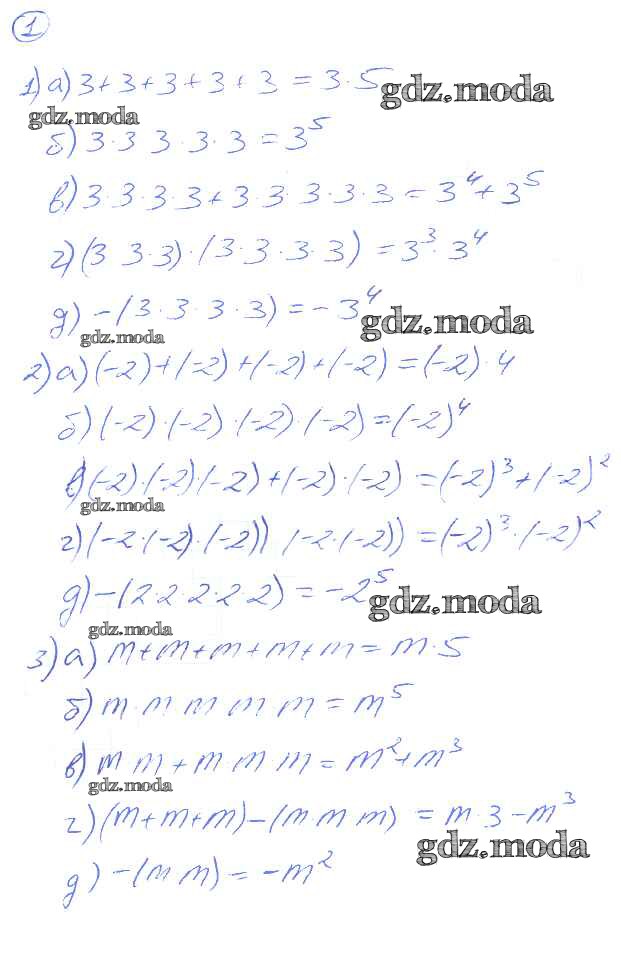 1
1) а) 3+3+3+3+3 = 3·5
gdz.moda
gdz.moda
б) 3·3 3·3·3 = 3⁵
в) 3·3·3·3+3·3·3·3·3 = 3⁴+3⁵
г) (3 3·3)·(3·3·3·3) = 3³·3⁴
д) -(3·3·3·3) = -3⁴
gdz.moda
gdz.moda
2) а) (-2)+(-2)+(-2)+(-2) = (-2)·4
б) (-2)·(-2)·(-2)·(-2) = (-2)⁴
в) (-2)·(-2)(-2)+(-2)·(-2) = (-2)³+(-2)²
gdz.moda
г) (-2·(-2)·(-2)) (-2·(-2)) = (-2)³·(-2)²
д) -(2·2·2·2·2) = -2⁵
gdz.moda
gdz.moda
3) а) m+m+m+m+m = m·5
б) m·m m m m = m⁵
в) m m+m m m = m²+m³
gdz.moda
г) (m+m+m)-(m m m) = m·3-m³
gdz.moda
д) -(m m) = -m²